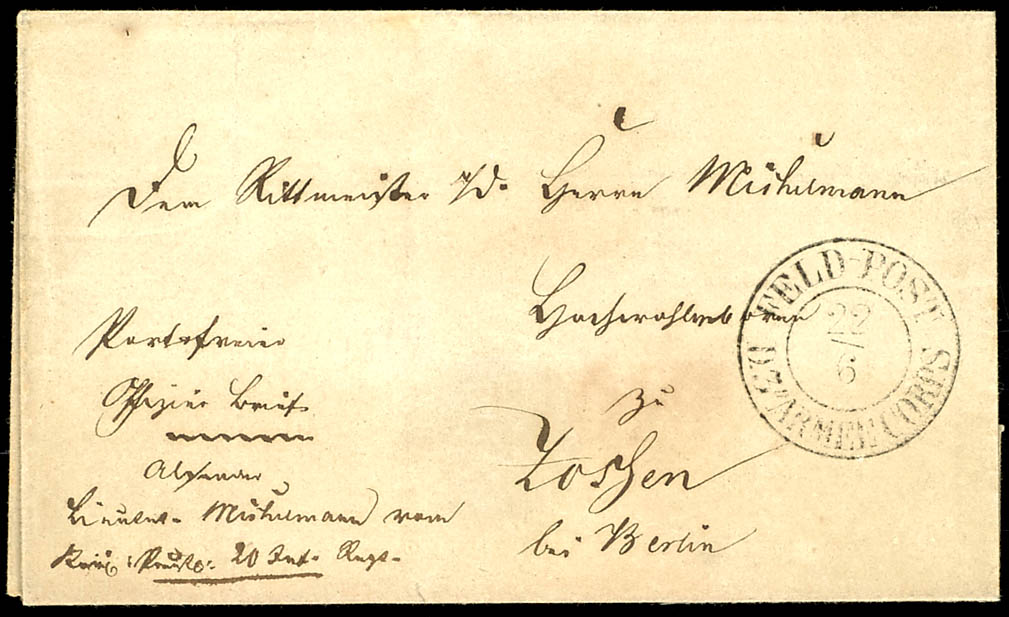 Dem Rittmeister a/D. Herrn Mühlmann
Hochwohlgeboren
zu
Zossen
bei Berlin
Portofreier
Offizier Brief
Absender
Lieutnt. Mühlmann vom
Königl: Preuß: 20 Inf. Regt.
FELD-POST
22
6
D. 2. ARMEE CORPS